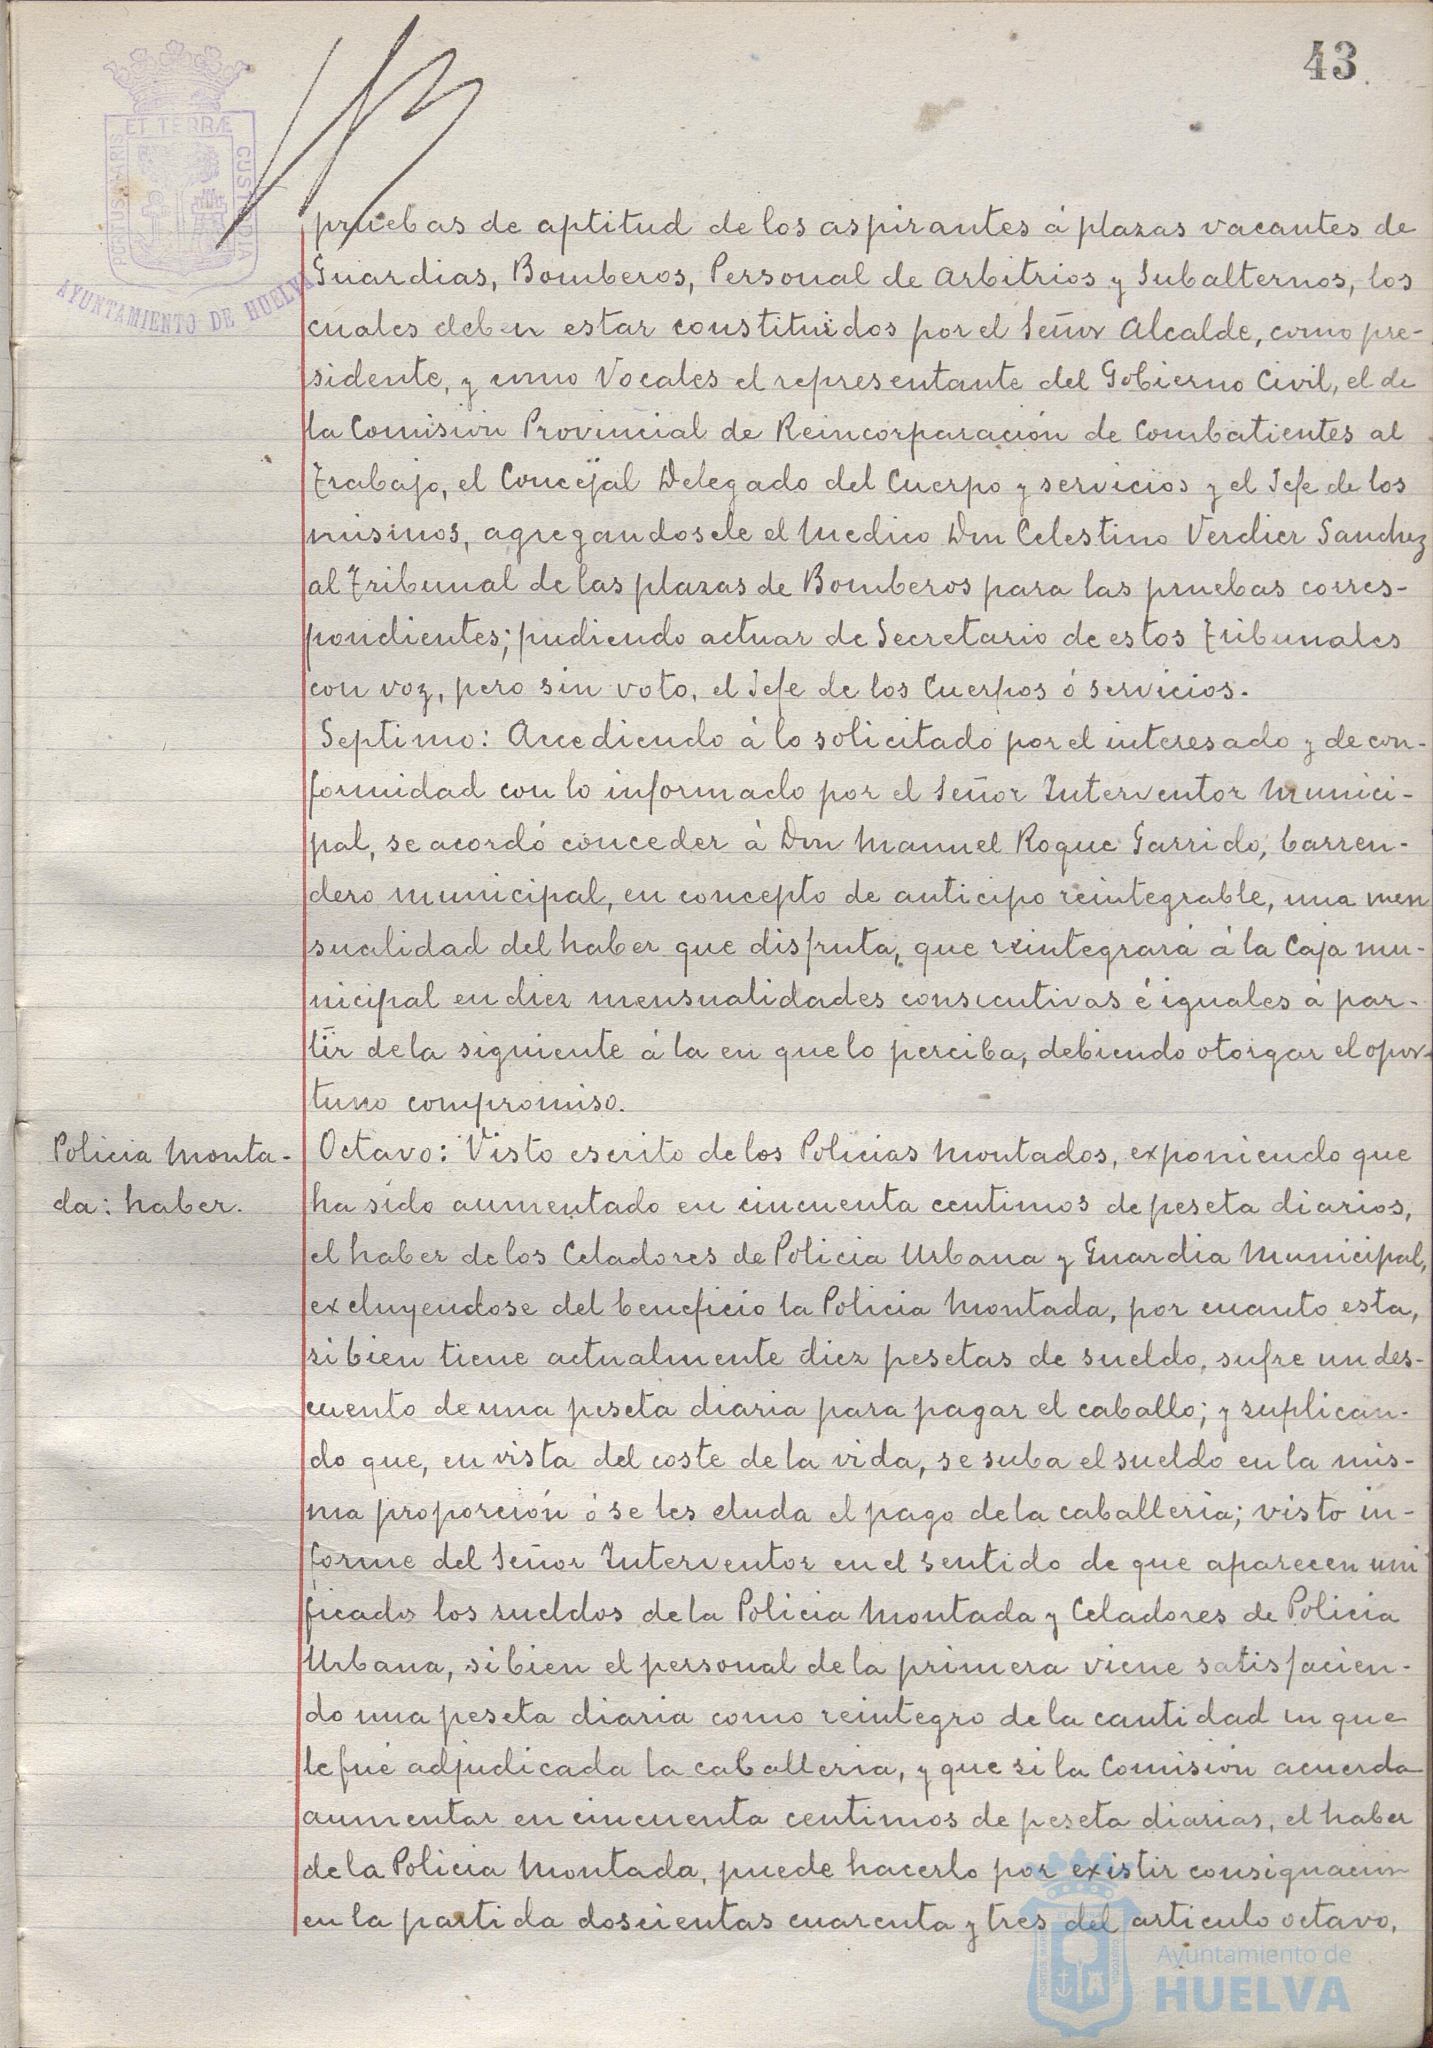 43
PORTUS MARIS ET TERRÆ CUSTODIA
AYUNTAMIENTO DE HUELVA
pruebas de aptitud de los aspirantes á plazas vacantes de
Guardias, Bomberos, Personal de Arbitrios y Subalternos, los
cuales deben estar constituidos por el Señor Alcalde, como pre-
sidente, y como Vocales el representante del Gobierno Civil, el de
la Comisión Provincial de Reincorparación de Combatientes al
trabajo, el Concejal Delegado del Cuerpo y servicios y el Jefe de los
mismos, agregandosele el Medico Don Celestino Verdier Sanchez
al Tribunal de las plazas de Bomberos para las pruebas corres-
pondientes; pudiendo actuar de Secretario de estos tribunales
con voz, pero sin voto, el Jefe de los Cuerpos ó servicios.
Septimo: Accediendo á lo solicitado por el interesado y de con-
formidad con lo informado por el Señor Interventor Munici-
pal, se acordó conceder á Don Manuel Roque Garrido, barren-
dero municipal, en concepto de anticipo reintegrable, una men
sualidad del haber que disfruta, que reintegrará á la Caja mu-
nicipal en diez mensualidades consecutivas é iguales á par-
tir de la siguiente á la en que lo perciba, debiendo otorgar el opor-
tuno compromiso.
Policia Monta-
da: haber.
Octavo: Visto escrito de los Policias Montados, exponiendo que
ha sido aumentado en cincuenta centimos de peseta diarios,
el haber de los Celadores de Policia Urbana y Guardia Municipal,
excluyendose del beneficio la Policia Montada, por cuanto esta,
si bien tiene actualmente diez pesetas de sueldo, sufre un des-
cuento de una peseta diaria para pagar el caballo; y suplican-
do que, en vista del coste de la vida, se suba el sueldo en la mis-
ma proporción ó se les eluda el pago de la caballeria; visto in-
forme del Señor Interventor en el sentido de que aparecen uni
ficados los sueldos de la Policia Montada y Celadores de Policia
Urbana, si bien el personal de la primera viene satisfacien-
do una peseta diaria como reintegro de la cantidad en que
le fué adjudicada la caballeria, y que si la Comisión acuerda
aumentar en cincuenta centimos de peseta diarias, el haber
de la Policia Montada, puede hacerlo por existir consignación
en la partida doscientas cuarenta y tres del articulo octavo,
Ayuntamiento de
HUELVA